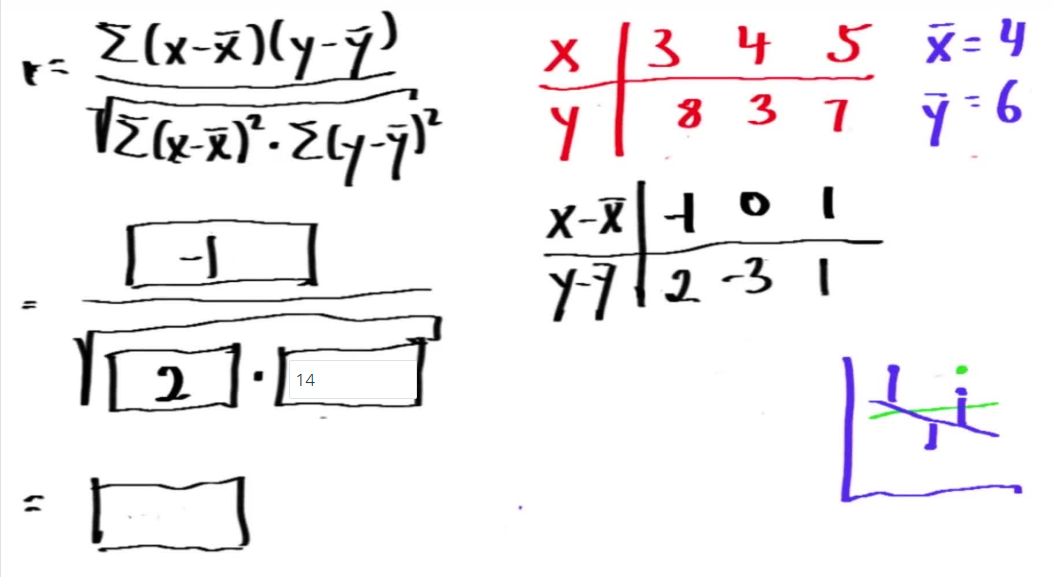 r = Σ(x-x̄)(y-ȳ) / √Σ(x-x̄)²·Σ(y-ȳ)²
= -1 / √2 · 14
=
x | 3 4 5
y | 8 3 7
x̄ = 4
ȳ = 6
x-x̄ | -1 0 1
y-ȳ | 2 -3 1